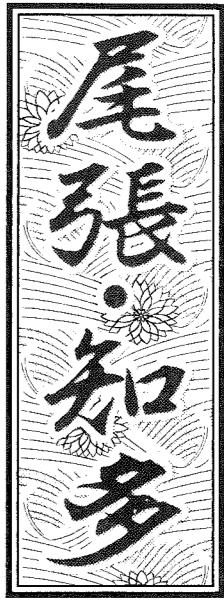 尾張・知多